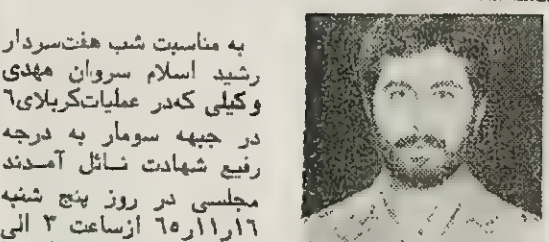 به مناسبت شب هفت‌سردار
رشید اسلام سروان مهدی
وکیلی که‌در عملیات‌کربلای٦
در جبهه سومار به درجه
رفیع شهادت نـائل آمـدند
مجلسی در روز پنج شنبه
١٦ر١١ر٦٥ ازساعت ٣ الی